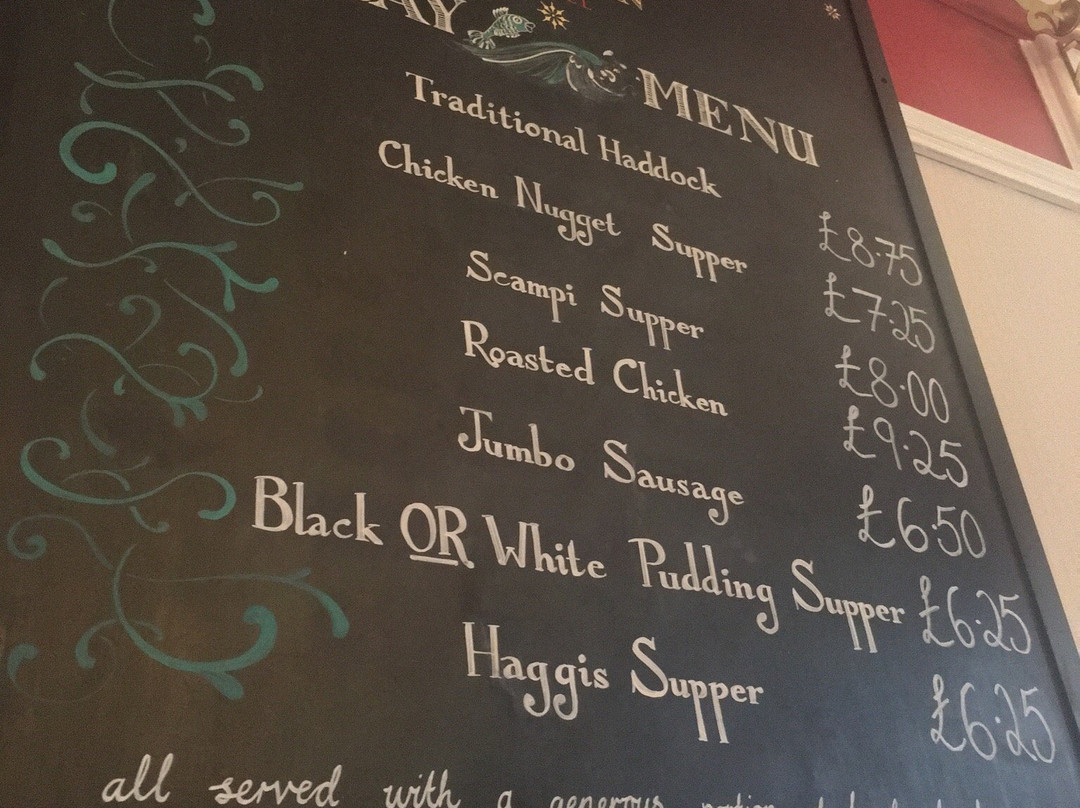 MENU
Traditional Haddock £8.75
Chicken Nugget Supper £7.25
Scampi Supper £8.00
Roasted Chicken £9.25
Jumbo Sausage £6.50
Black OR White Pudding Supper £6.25
Haggis Supper £6.25
all served with a generous